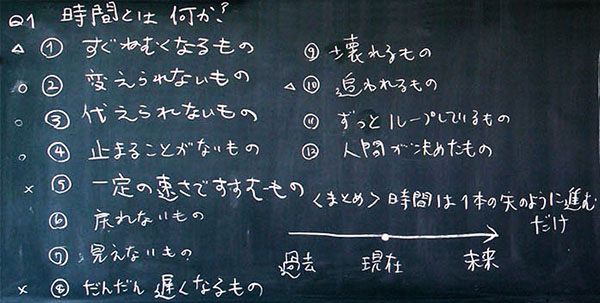 Q1 時間とは 何か?
△ ① すぐねむくなるもの
○ ② 変えられないもの
○ ③ 代えられないもの
○ ④ 止まることがないもの
× ⑤ 一定の速さですすむもの
⑥ 戻れないもの
⑦ 見えないもの
× ⑧ だんだん遅くなるもの
⑨ 壊れるもの
△ ⑩ 追われるもの
⑪ ずっとループしているもの
⑫ 人間が決めたもの
<まとめ> 時間は1本の矢のように進む
だけ
過去 現在 未来